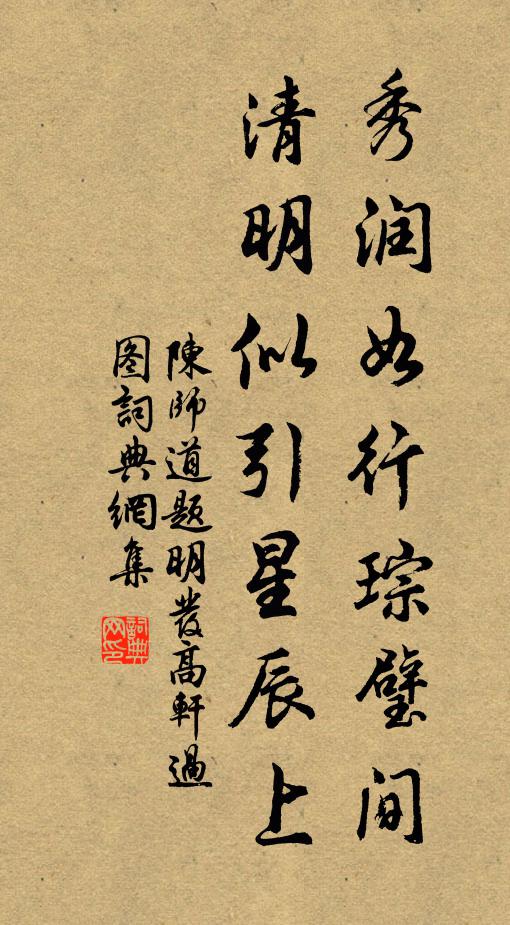 秀润如行琮璧间
清明似引星辰上
陳師道題明發高軒過
图詞典網集
詞典网印